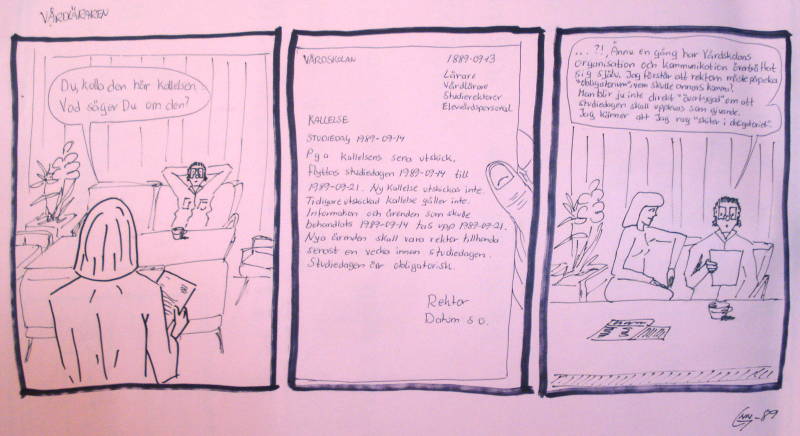 VÅRDLÄRAREN
Du, kolla den här kallelsen.
Vad säger Du om den?
VÅRDSKOLAN 1889-0913
Lärare
Vårdlärare
Studierektorer
Elevvårdspersonal
KALLELSE
STUDIEDAG 1989-09-14
P g a kallelsens sena utskick,
flyttas studiedagen 1989-09-14 till
1989-09-21. Ny kallelse utskickas inte.
Tidigare utskickad kallelse gäller inte.
Information och ärenden som skulle
behandlats 1989-09-14 tas upp 1989-09-21.
Nya ärenden skall vara rektor tillhanda
senast en vecka innan studiedagen.
Studiedagen är obligatorisk.
Rektor
Datum s o.
...?!, Ännu en gång har Vårdskolans
organisation och kommunikation överträffat
sig själv. Jag förstår att rektorn måste påpeka
"obligatorium", vem skulle annars komma?
Man blir ju inte direkt "övertygad" om att
studiedagen skall upplevas som givande.
Jag känner att Jag nog "skiter i obligatoriet".
-89